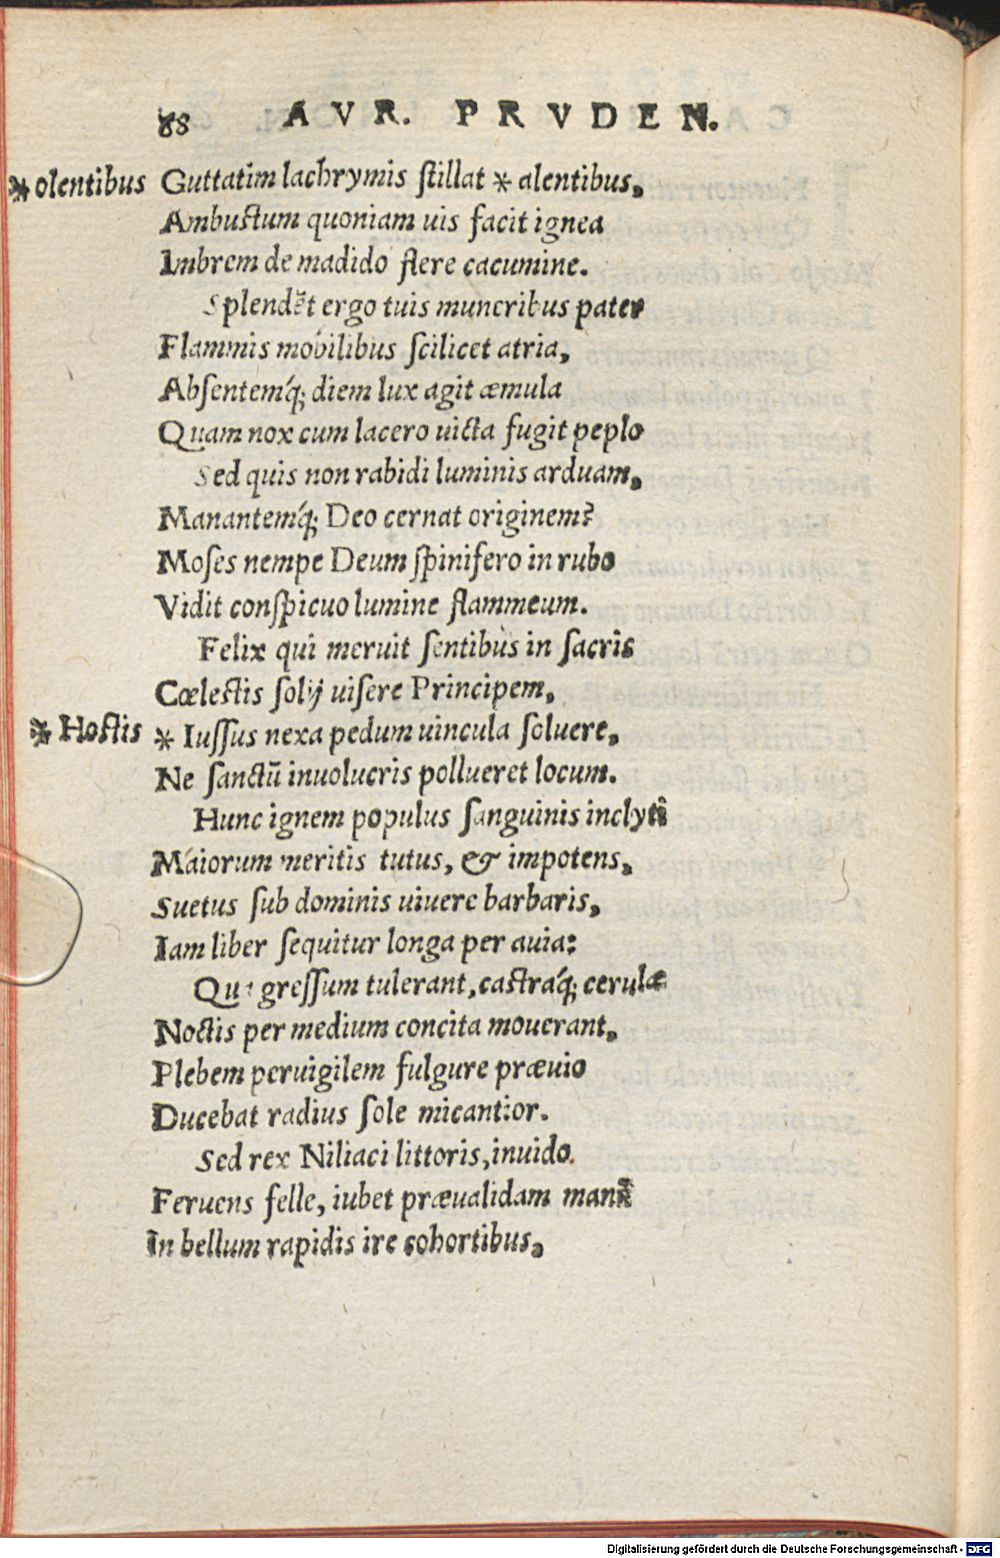 88 AVR. PRVDEN.
* olentibus Guttatim lachrymis ſtillat * alentibus,
Ambuſtum quoniam uis facit ignea
Imbrem de madido flere cacumine.
Splendẽt ergo tuis muneribus pater
Flammis mobilibus ſcilicet atria,
Abſentemq́; diem lux agit æmula
Quam nox cum lacero uicta fugit peplo
Sed quis non rabidi luminis arduam,
Manantemq́; Deo cernat originem?
Moſes nempe Deum ſpinifero in rubo
Vidit conſpicuo lumine flammeum.
Felix qui meruit ſentibus in ſacris
Cœleſtis ſolij uiſere Principem,
* Hoſtis * Iuſſus nexa pedum uincula ſoluere,
Ne ſanctũ inuolucris pollueret locum.
Hunc ignem populus ſanguinis inclyti
Maiorum meritis tutus, & impotens,
Suetus ſub dominis uiuere barbaris,
Iam liber ſequitur longa per auia:
Qua greſſum tulerant, caſtraq́; cerulæ
Noctis per medium concita mouerant,
Plebem peruigilem fulgure præuio
Ducebat radius ſole micantior.
Sed rex Niliaci littoris, inuido.
Feruens felle, iubet præualidam manũ
In bellum rapidis ire cohortibus,
Digitalisierung gefördert durch die Deutsche Forschungsgemeinschaft - DFG